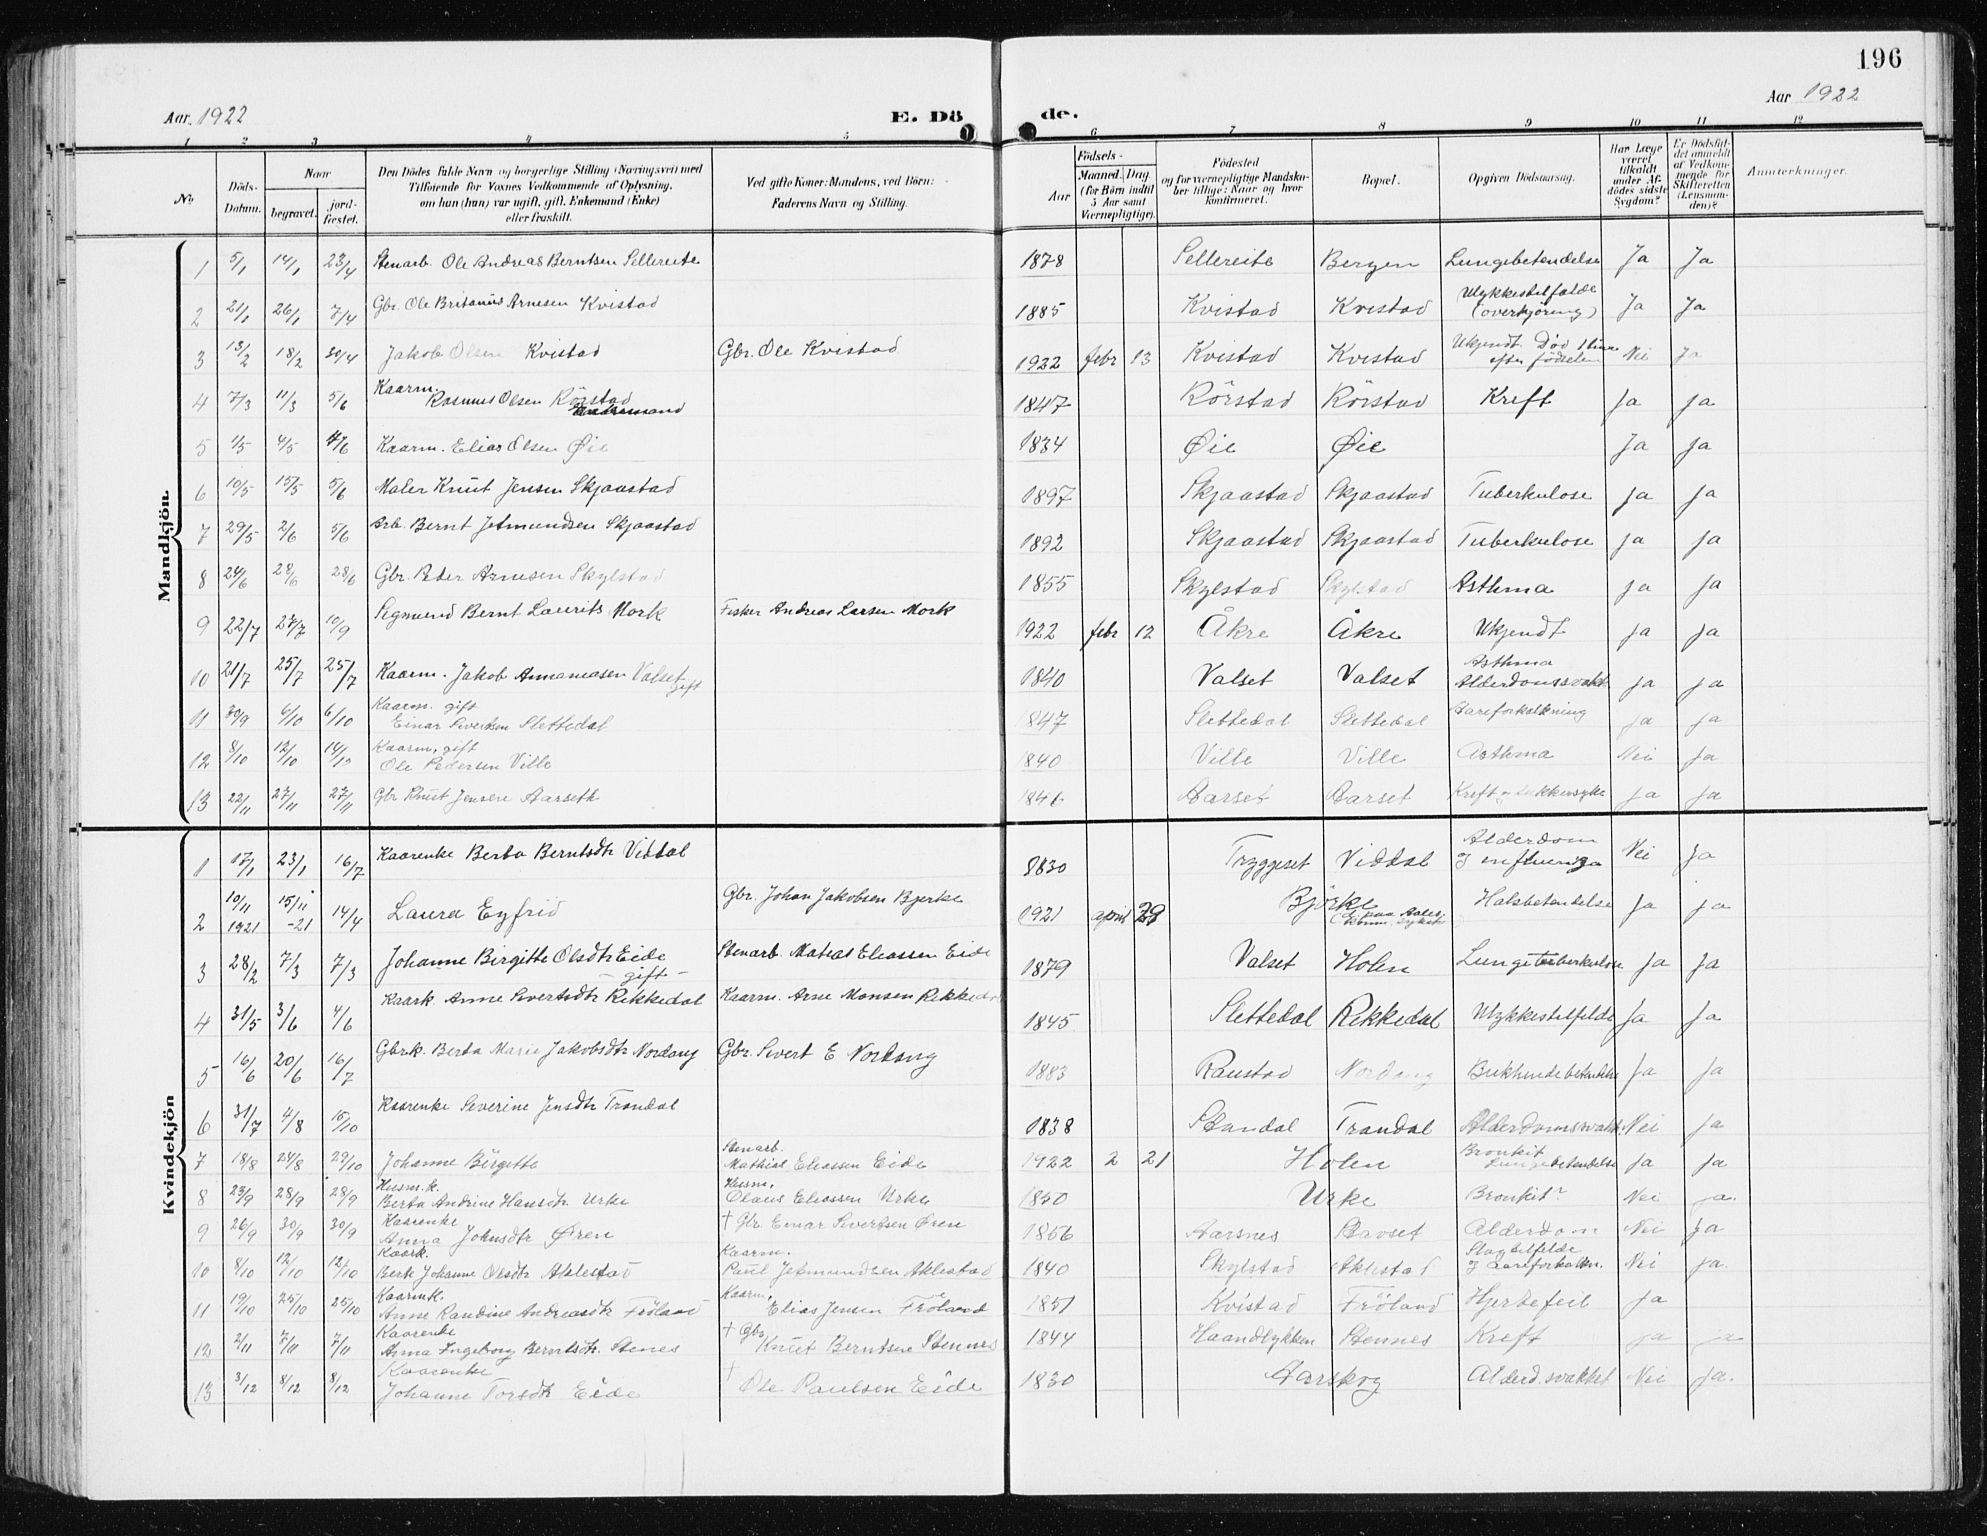 196
Aar 1922 E. Dö de. Aar 1922
1 2 3 4 5 6 7 8 9 10 11 12
No. Döds-Datum. Naar begravet. jordfæstet. Den Dödes fulde Navn og borgerlige Stilling (Næringsvei) med Tilföiende for Voxnes Vedkommende af Oplysning, om han (hun) var ugift, gift, Enkemand (Enke) eller fraskilt. Ved gifte Koner: Mandens, ved Börn: Faderens Navn og Stilling. Födsels- Aar Maaned. Dag. (for Börn indtil 5 Aar samt Værnepligtige). Födested og for værnepligtige Mandskaber tillige: Naar og hvor konfirmeret. Bopæl. Opgiven Dödsaarsag. Har Læge været tilkaldt under Afdödes sidste Sygdom? Er Dödsfaldet anmeldt af Vedkommende for Skifteretten (Lensmanden)? Anmerkninger.
Mandkjön
1 5/1 14/1 23/4 Stenarb. Ole Andreas Berntsen Sellereite 1878 Sellereite Bergen Lungebetendelse Ja Ja
2 21/1 26/1 7/4 Gbr. Ole Britanus Arnesen Kvistad 1885 Kvistad Kvistad Ulykkestilfælde (overkjöring) Ja Ja
3 13/2 18/2 30/4 Jakob Olsen Kvistad Gbr. Ole Kvistad 1922 febr 13 Kvistad Kvistad Ukjendt. Död 1 time efter födselen Nei Ja
4 7/3 11/3 5/6 Kaarm. Rasmus Olsen Rörstad 1847 Rörstad Rörstad Kreft Ja Ja
5 1/5 4/5 4/6 Kaarm. Elias Olsen Øie 1834 Øie Øie Ja Ja
6 10/5 15/5 5/6 Maler Knut Jensen Skjaastad 1897 Skjaastad Skjaastad Tuberkulose Ja Ja
7 29/5 2/6 5/6 Arb. Bernt Jetmundsen Skjaastad 1892 Skjaastad Skjaastad Tuberkulose Ja Ja
8 24/6 28/6 28/6 Gbr. Peder Arnesen Skylstad 1855 Skylstad Skylstad Asthma Ja Ja
9 22/7 27/7 10/9 Sigmund Bernt Laurits Mork Fisker Andreas Larsen Mork 1922 febr 12 Åkre Åkre Ukjendt Ja Ja
10 21/7 25/7 25/7 Kaarm. Jakob Annaniasen Valset gift 1840 Valset Valset Asthma Alderdomssvakt Ja Ja
11 30/9 6/10 6/10 Kaarm. gift Einar Sivertsen Slettedal 1847 Slettedal Slettedal Aareforkalkning Ja Ja
12 8/10 12/10 14/10 Kaarm, gift Ole Pedersen Ville 1840 Ville Ville Asthma Nei Ja
13 22/11 27/11 27/11 Gbr Knut Jensen Aarseth 1846 Aarset Aarset Kreft og sukkersyke Ja Ja
Kvindekjön
1 17/1 23/1 16/7 Kaarenke Berta Berntsdtr Viddal 1830 Tryggeset Viddal Alderdom og influenza Nei Ja
2 10/11 1921 15/11 -21 14/4 Laura Eyfrid Gbr. Johan Jakobsen Bjerke 1921 april 29 Bjørke Halsbetendelse Ja Ja
3 28/2 7/3 7/3 Johanne Birgitte Olsdtr Eide - gift - Stenarb. Matias Eliassen Eide 1879 Valset Holen Lungetuberkulose Ja Ja
4 31/5 3/6 4/6 Kaark Anne Sivertsdtr Rekkedal Kaarm. Arne Monsen Rekkedal 1845 Slettedal Rekkedal Ulykkestilfelde Ja Ja
5 16/6 20/6 16/7 Gbrk. Berta Marie Jakobsdtr Nordang Gbr. Sivert E Nordang 1883 Raustad Nordang Bukhindebetendelse Ja Ja
6 31/7 4/8 15/10 Kaarenke Severine Jensdtr Trandal 1838 Standal Trandal Alderdomssvakh. Nei Ja
7 18/8 24/8 29/10 Johanne Birgette Stenarb. Mathias Eliassen Eide 1922 2 21 Holen Bronkit Lungebetendelse Ja Ja
8 23/9 28/9 28/9 Husm.k. Berta Andrine Hansdtr Urke Husm. Olaus Eliassen Urke 1850 Urke Bronkit? Nei Ja.
9 26/9 30/9 30/9 Kaarenke Anna Johnsdtr Ören † Gbr. Einar Sivertsen Ören 1856 Aarsnes Stavset Alderdom Nei Ja
10 8/10 12/10 12/10 Kaark. Berte Johanne Olsdtr Aklestad Kaarm. Paul Jetmundsen Aklestad 1840 Skylstad Aklestad Slagtilfelde og aareforkalkn. Nei Ja.
11 19/10 25/10 25/10 Kaarmk. Anne Randine Andreasdtr Fröland Kaarm, Elias Jensen Fröland 1851 Kvistad Fröland Hjertefeil Ja
12 2/11 7/11 7/11 Kaarenke Anna Ingeborg Berntsdtr. Stenes † Gbr Knut Berntsen Stennes 1844 Haandlykken Stennes Kreft Ja Ja
13 3/12 8/12 8/12 Kaarenke Johanne Torsdtr Eide † Ole Paulsen Eide 1830 Aarskog Alderd.svakhet Nei Ja.